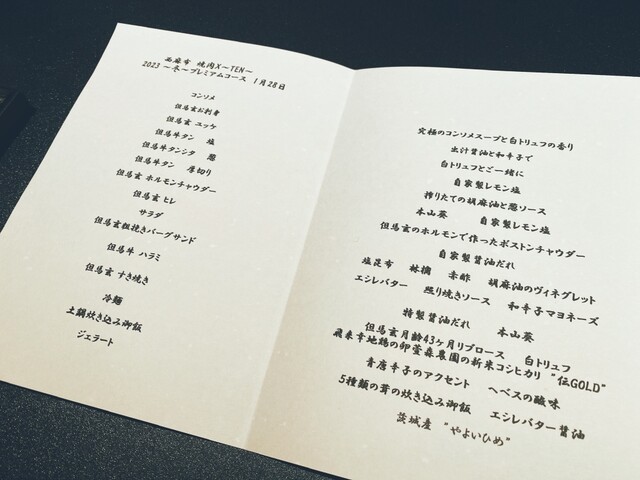 西麻布 焼肉X〜TEN〜
2023 〜冬〜プレミアムコース 1月28日
コンソメ
但馬玄お刺身
但馬玄 ユッケ
但馬牛タン 塩
但馬牛タンシタ 葱
但馬牛タン 厚切り
但馬玄 ホルモンチャウダー
但馬玄 ヒレ
サラダ
但馬玄粗挽きバーグサンド
但馬牛 ハラミ
但馬玄 すき焼き
冷麺
土鍋炊き込み御飯
ジェラート
究極のコンソメスープと白トリュフの香り
出汁醤油と和辛子で
白トリュフとご一緒に
自家製レモン塩
搾りたての胡麻油と葱ソース
本山葵 自家製レモン塩
但馬玄のホルモンで作ったボストンチャウダー
自家製醤油だれ
塩昆布 林檎 赤酢 胡麻油のヴィネグレット
エシレバター 照り焼きソース 和辛子マヨネーズ
特製醤油だれ 本山葵
但馬玄月齢43ヶ月リブロース 白トリュフ
飛来幸地鶏の卵萱森農園の新米コシヒカリ "伝GOLD"
青唐辛子のアクセント ヘベスの酸味
5種類の茸の炊き込み御飯 エシレバター醤油
茨城産 "やよいひめ"